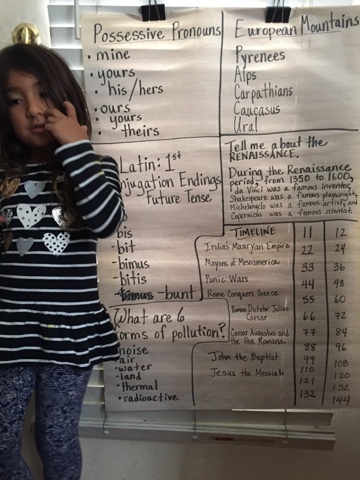 Possessive Pronouns
• mine
• yours
• his/hers
• ours
• yours
• theirs
European Mountains
Pyrenees
Alps
Carpathians
Caucasus
Ural
Latin: 1st
njugation Endings
Future Tense
bis
-bit
-bimus
-bitis
-bunt
Tell me about the
RENAISSANCE.
During the Renaissance
period, from 1350 to 1600,
da Vinci was a famous inventor,
Shakespeare was a famous playwright,
Michelangelo was a famous artist, and
Copernicus was a famous scientist.
What are 6
orms of pollution?
noise
-air
-water
-land
-thermal
-radioactive
TIMELINE
India's Mauryan Empire
Mayans of Mesoamerica
Punic Wars
Rome Conquers Greece
Roman Dictator Julius
Caesar
Caesar Augustus and
the Pax Romana
John the Baptist
Jesus the Messiah
11 12
22 24
33 36
44 48
55 60
66 72
77 84
88 96
99 108
110 120
121 132
132 144